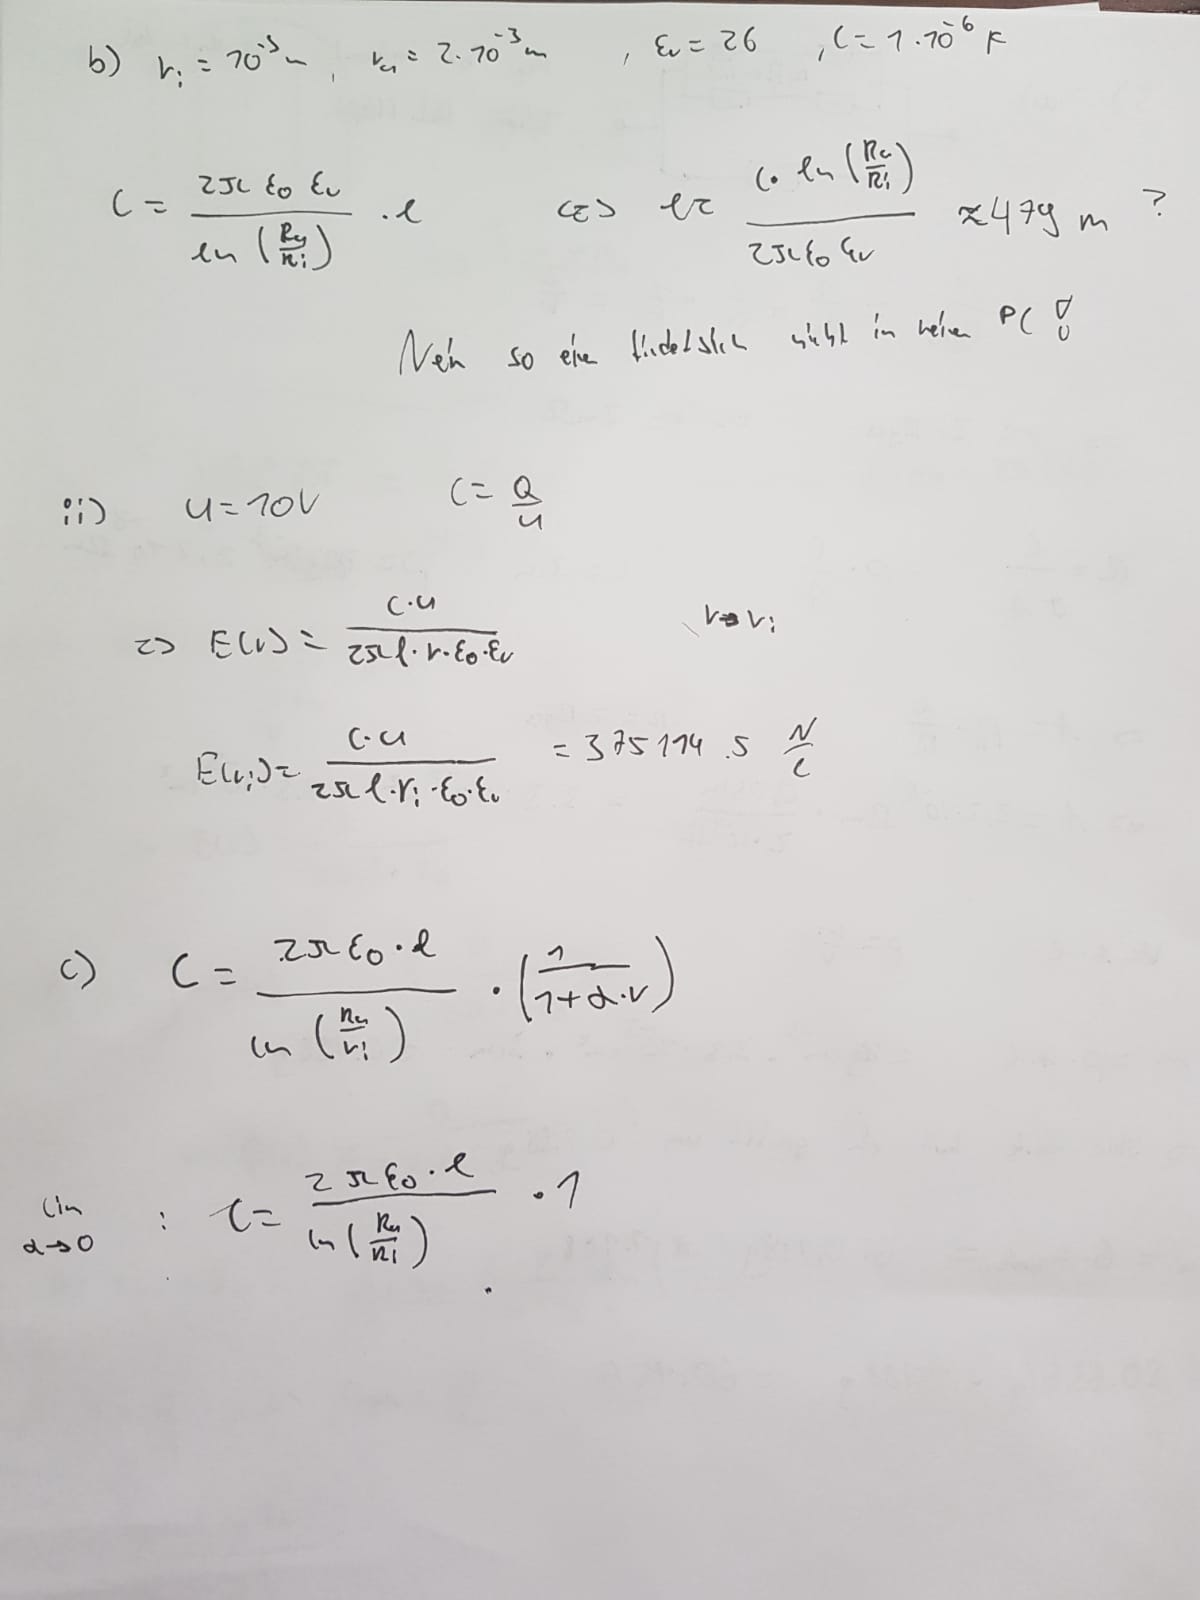 b) r_i = 10^-3 m , r_a = 2·10^-3 m , ε_r = 26 , C = 1·10^-6 F
C = 2π ε_0 ε_r / ln (R_a/R_i) · l <=> l = C · ln (R_a/R_i) / 2π ε_0 ε_r ≈ 479 m ?
Nein so ein nicht in keinen PC !
ii) U = 10V C = Q/U
=> E(r) = C·U / 2π l · r · ε_0 · ε_r r → r_i
E(r_i) = C·U / 2π l · r_i · ε_0 · ε_r = 375114.5 N/C
c) C = 2π ε_0 · l / ln (R_a/r_i) · (1 / 1+α·r)
lim α→0 : C = 2π ε_0 · l / ln (R_a/R_i) · 1